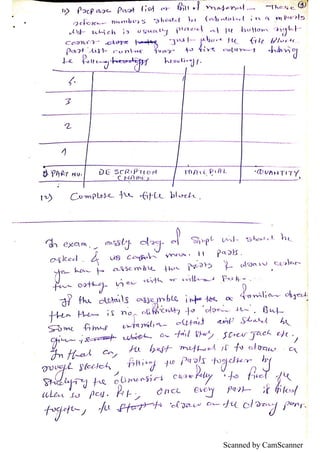 11) Prepare Part list or Bill of material - These
reference numbers should be tabulated in a materials
list which is usually placed at the bottom right
corner just above the title block.
Part list contains four to five columns having
the following headings.
4.
3
2
1
PART NO. DESCRIPTION (NAME) MATERIAL QUANTITY
12) Complete the title block.
In exam., assly drag of simple unit should be
asked. & will contain max. 11 parts.
you have to assemble these parts & draw certain
two orthog. view with or without
If the details assemble into a familiar object
then there is no difficulty to draw it. But
Some times unfamiliar details unit should be
given as tail stock, screw jack etc.,
In that case, the best method is to draw a
rough sketch, fitting the Parts together by
studying the dimensions carefully to find the
Once every part is fitted
together, to draw on the drawing paper.
Scanned by CamScanner